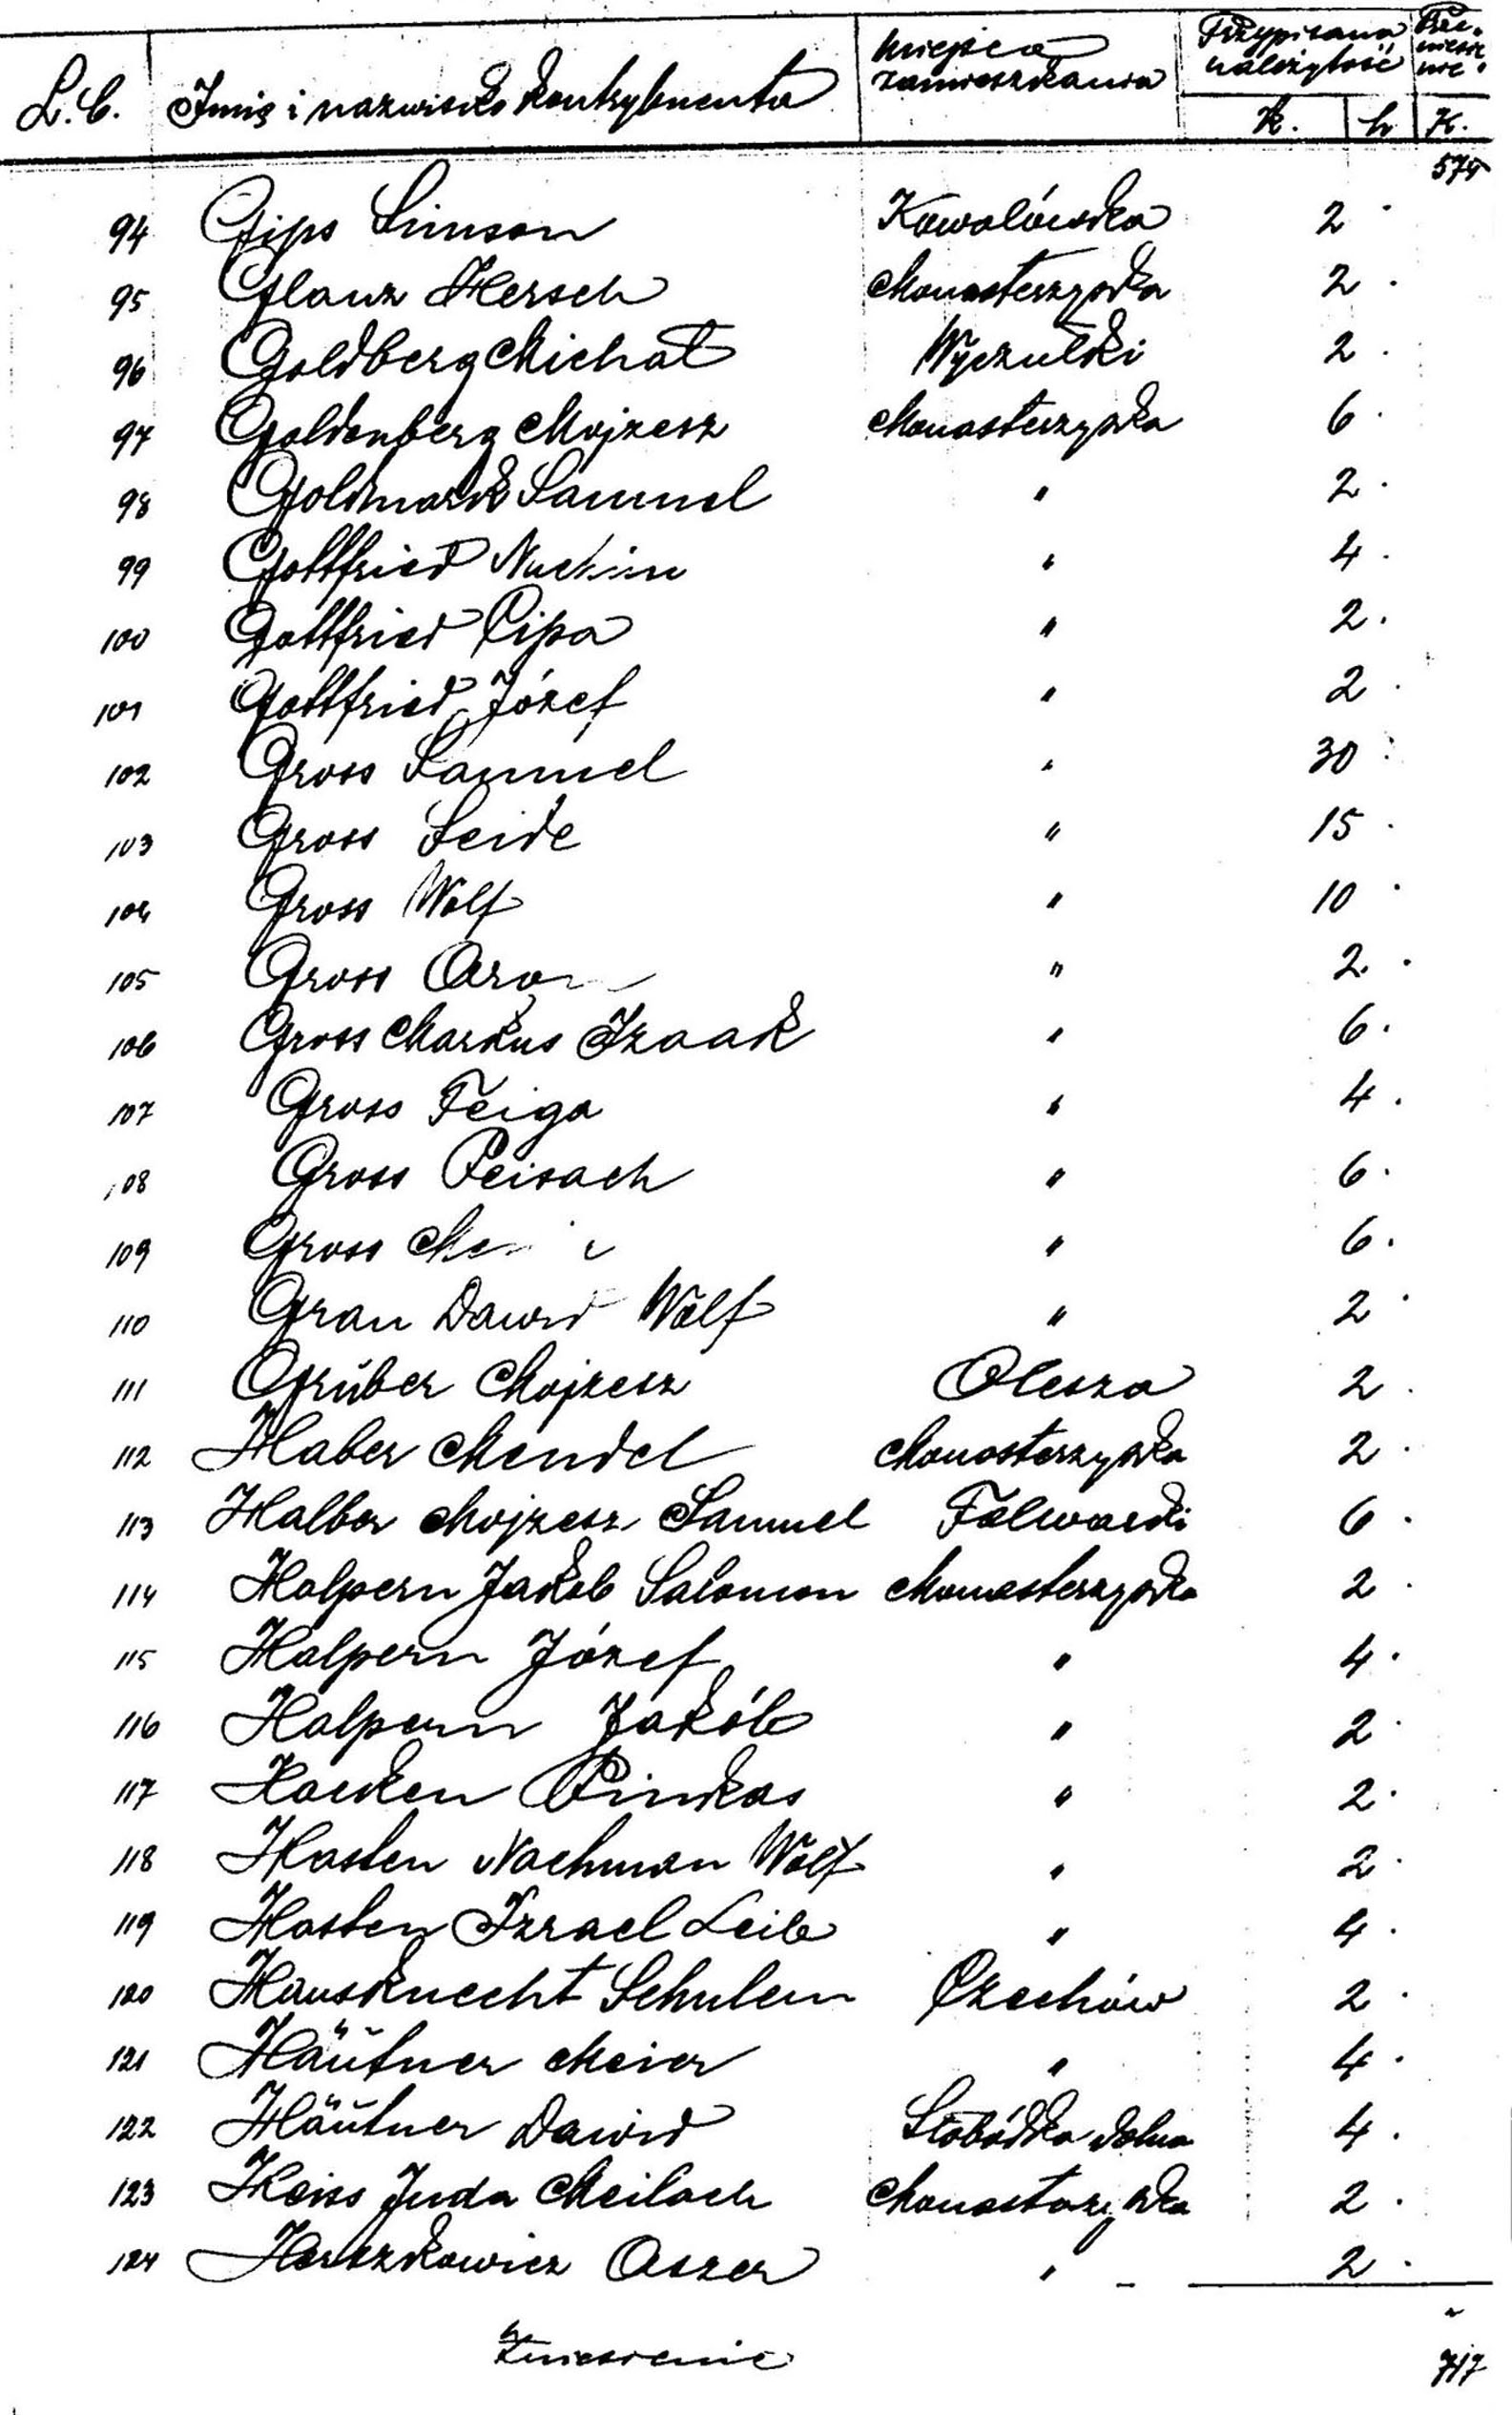 L.b. Imię i nazwisko kontrybuenta miejsce zamieszkania Przypisana należytość K. h K.
574
94 Gips Simson Kowalówka 2 .
95 Glanz Hersch Monasterzyska 2 .
96 Goldberg Michał Wyczułki 2 .
97 Goldenberg Mojzesz Monasterzyska 6 .
98 Goldmark Samuel " 2 .
99 Gottfried Nuchim " 4 .
100 Gottfried Cipa " 2 .
101 Gottfried Józef " 2 .
102 Gross Samuel " 30 .
103 Gross Seide " 15 .
104 Gross Wolf " 10 .
105 Gross Aron " 2 .
106 Gross Markus Izaak " 6 .
107 Gross Feiga " 4 .
108 Gross Peisach " 6 .
109 Gross " 6 .
110 Grau Dawid Wolf " 2 .
111 Grüber Mojzesz Olesza 2 .
112 Haber Mendel Monasterzyska 2 .
113 Halber Mojzesz Samuel Folwarki 6 .
114 Halpern Jakob Salomon Monasterzyska 2 .
115 Halpern Józef " 4 .
116 Halpern Jakób " 2 .
117 Harken Pinkas " 2 .
118 Hasten Nachman Wolf " 2 .
119 Hasten Izrael Leib " 4 .
120 Hausknecht Schulem Czechów 2 .
121 Häutner Meier " 4 .
122 Häutner Dawid Słobódka dolna 4 .
123 Heiss Juda Meilach Monasterzyska 2 .
124 Herszkowicz Oszer " 2 .
717